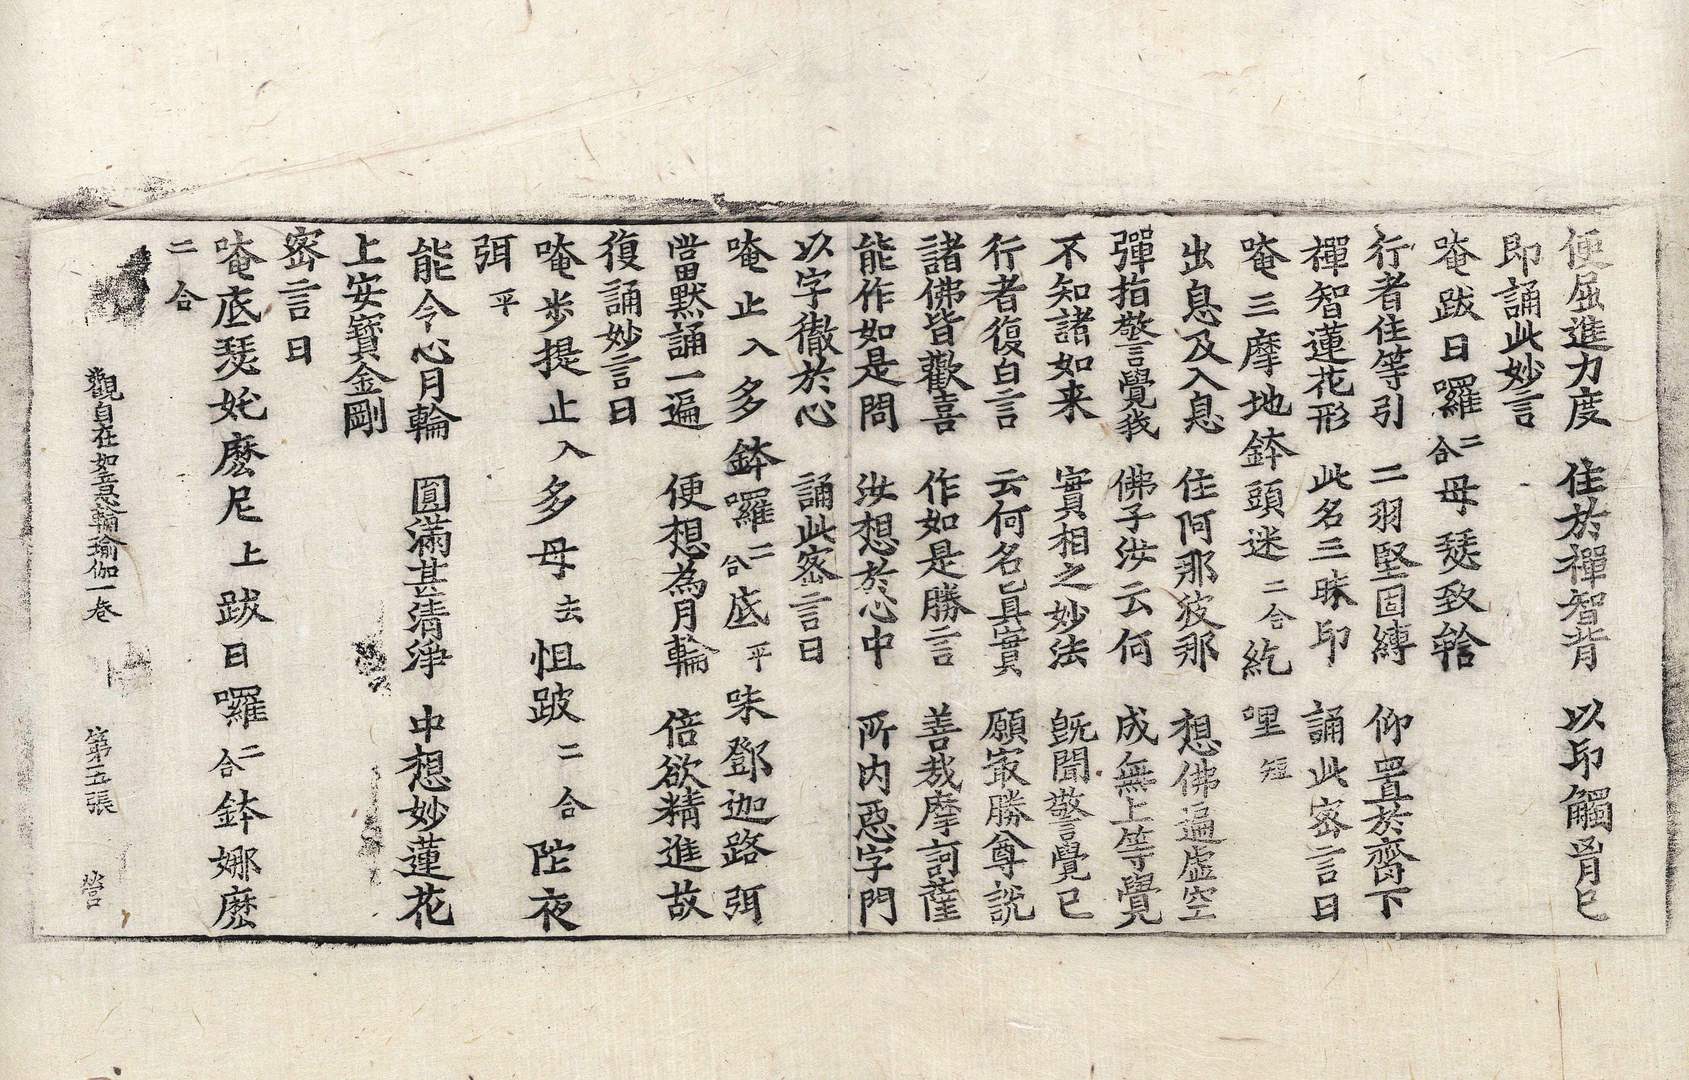 便屈進力度　住於禪智背　以印觸胷已
即誦此妙言
唵跋日囉二合母瑟致鎋
行者住等引　二羽堅固縛　仰置於齊下
禪智蓮花形　此名三昧印　誦此密言曰
唵三摩地鉢頭迷二合紇哩短
出息及入息　住阿那波那　想佛遍虛空
彈指敬言覺我　佛子汝云何　成無上等覺
不知諸如来　實相之妙法　旣聞警覺已
行者復白言　云何名真實　願㝡勝尊說
諸佛皆歡喜　作如是勝言　善㢤摩訶薩
能作如是問　汝想於心中　所內惡字門
以字徹於心　誦此密言曰
唵止入多鉢囉二合底平味鄧迦路弭
當黙誦一遍　便想為月輪　倍欲精進故
復誦妙言曰
唵步提止入多母去怛跛二合陀夜
弭平
能令心月輪　圓滿甚清淨　中想妙蓮花
上安寶金剛
密言曰
唵底瑟姹麼尼上跋日囉二合鉢娜麼
二合
觀自在如意輪瑜伽一卷　第五張　營